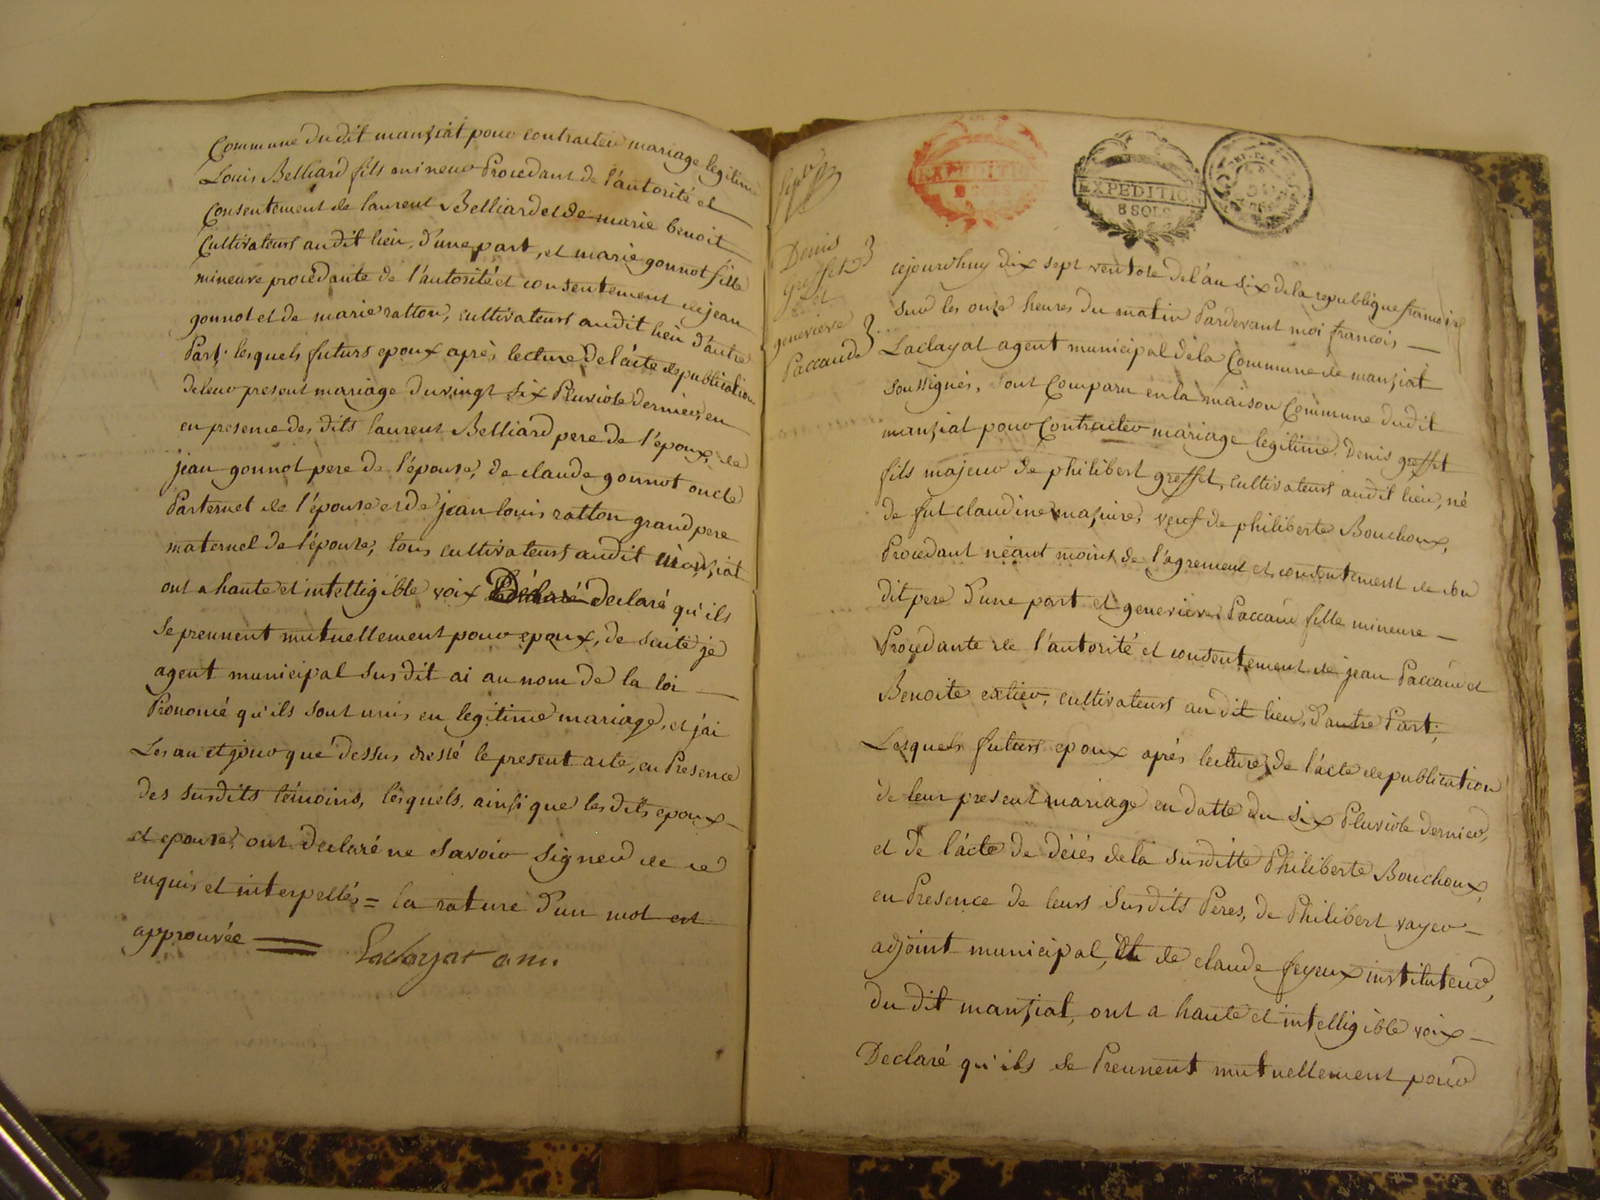 Commune dudit manziat pour contracter mariage legitime
Louis Belliard fils mineur Procedant de l'autorité et
Consentement de laurent Belliard et de marie benoit
Cultivateurs audit lieu, d'une part, et marie gonnot fille
mineure procedante de l'autorité et consentement de jean
gonnot et de marie ratton, cultivateurs audit lieu d'autre
Part; lesquels futurs epoux après lecture de l'acte de publication
de leur present mariage du vingt six Pluviose dernier, en
en presence des dits laurent Belliard pere de l'époux, de
jean gonnot pere de l'épouse, de claude gonnot oncle
Parternel de l'épouse et de jean louis ratton grand pere
maternel de l'épouse, tous cultivateurs audit manziat
ont a haute et intelligible voix declaré qu'ils
se prennent mutuellement pour epoux, de suite je
agent municipal susdit ai au nom de la loi
Prononcé qu'ils sont unis en legitime mariage, et j'ai
Les an et jour que dessus dressé le present acte, en Presence
des susdits témoins, lesquels, ainsi que lesdits epoux
et epouse, ont declaré ne savoir signer de ce
enquis et interpellés = la rature d'un mot est
approuvée Laclayat am.
Denis
greffet
et
genevieve
Paccaud
EXPEDITION
8 SOLS
EXPEDITION
8 SOLS
cejourd'huy dix sept ventose de l'an six de la republique francoise
Sur les onze heures du matin Pardevant moi francois
Laclayat agent municipal de la Commune de manziat
soussignés, sont Comparu en la maison Commune dudit
manziat pour Contracter mariage legitime. Denis greffet
fils majeur de philibert greffet, cultivateurs audit lieu, né
de fut claudine majuire, veuf de philiberte Bouchoux,
Procedant néant moins de l'agrement et consentement de son
dit pere d'une part et genevieve Paccaud fille mineure
Procedante de l'autorité et consentement de jean Paccaud et
Benoite extier, cultivateurs au dit lieu, d'autre Part;
Lesquels futurs epoux après lecture de l'acte de publication
de leur present mariage en datte du six Pluviose dernier,
et de l'acte de décés de la susditte Philiberte Bouchoux,
en Presence de leurs susdits Peres, de Philibert vayer
adjoint municipal, de claude feyeux instituteur,
du dit manziat, ont a haute et intelligible voix
Declaré qu'ils se Prennent mutuellement pour